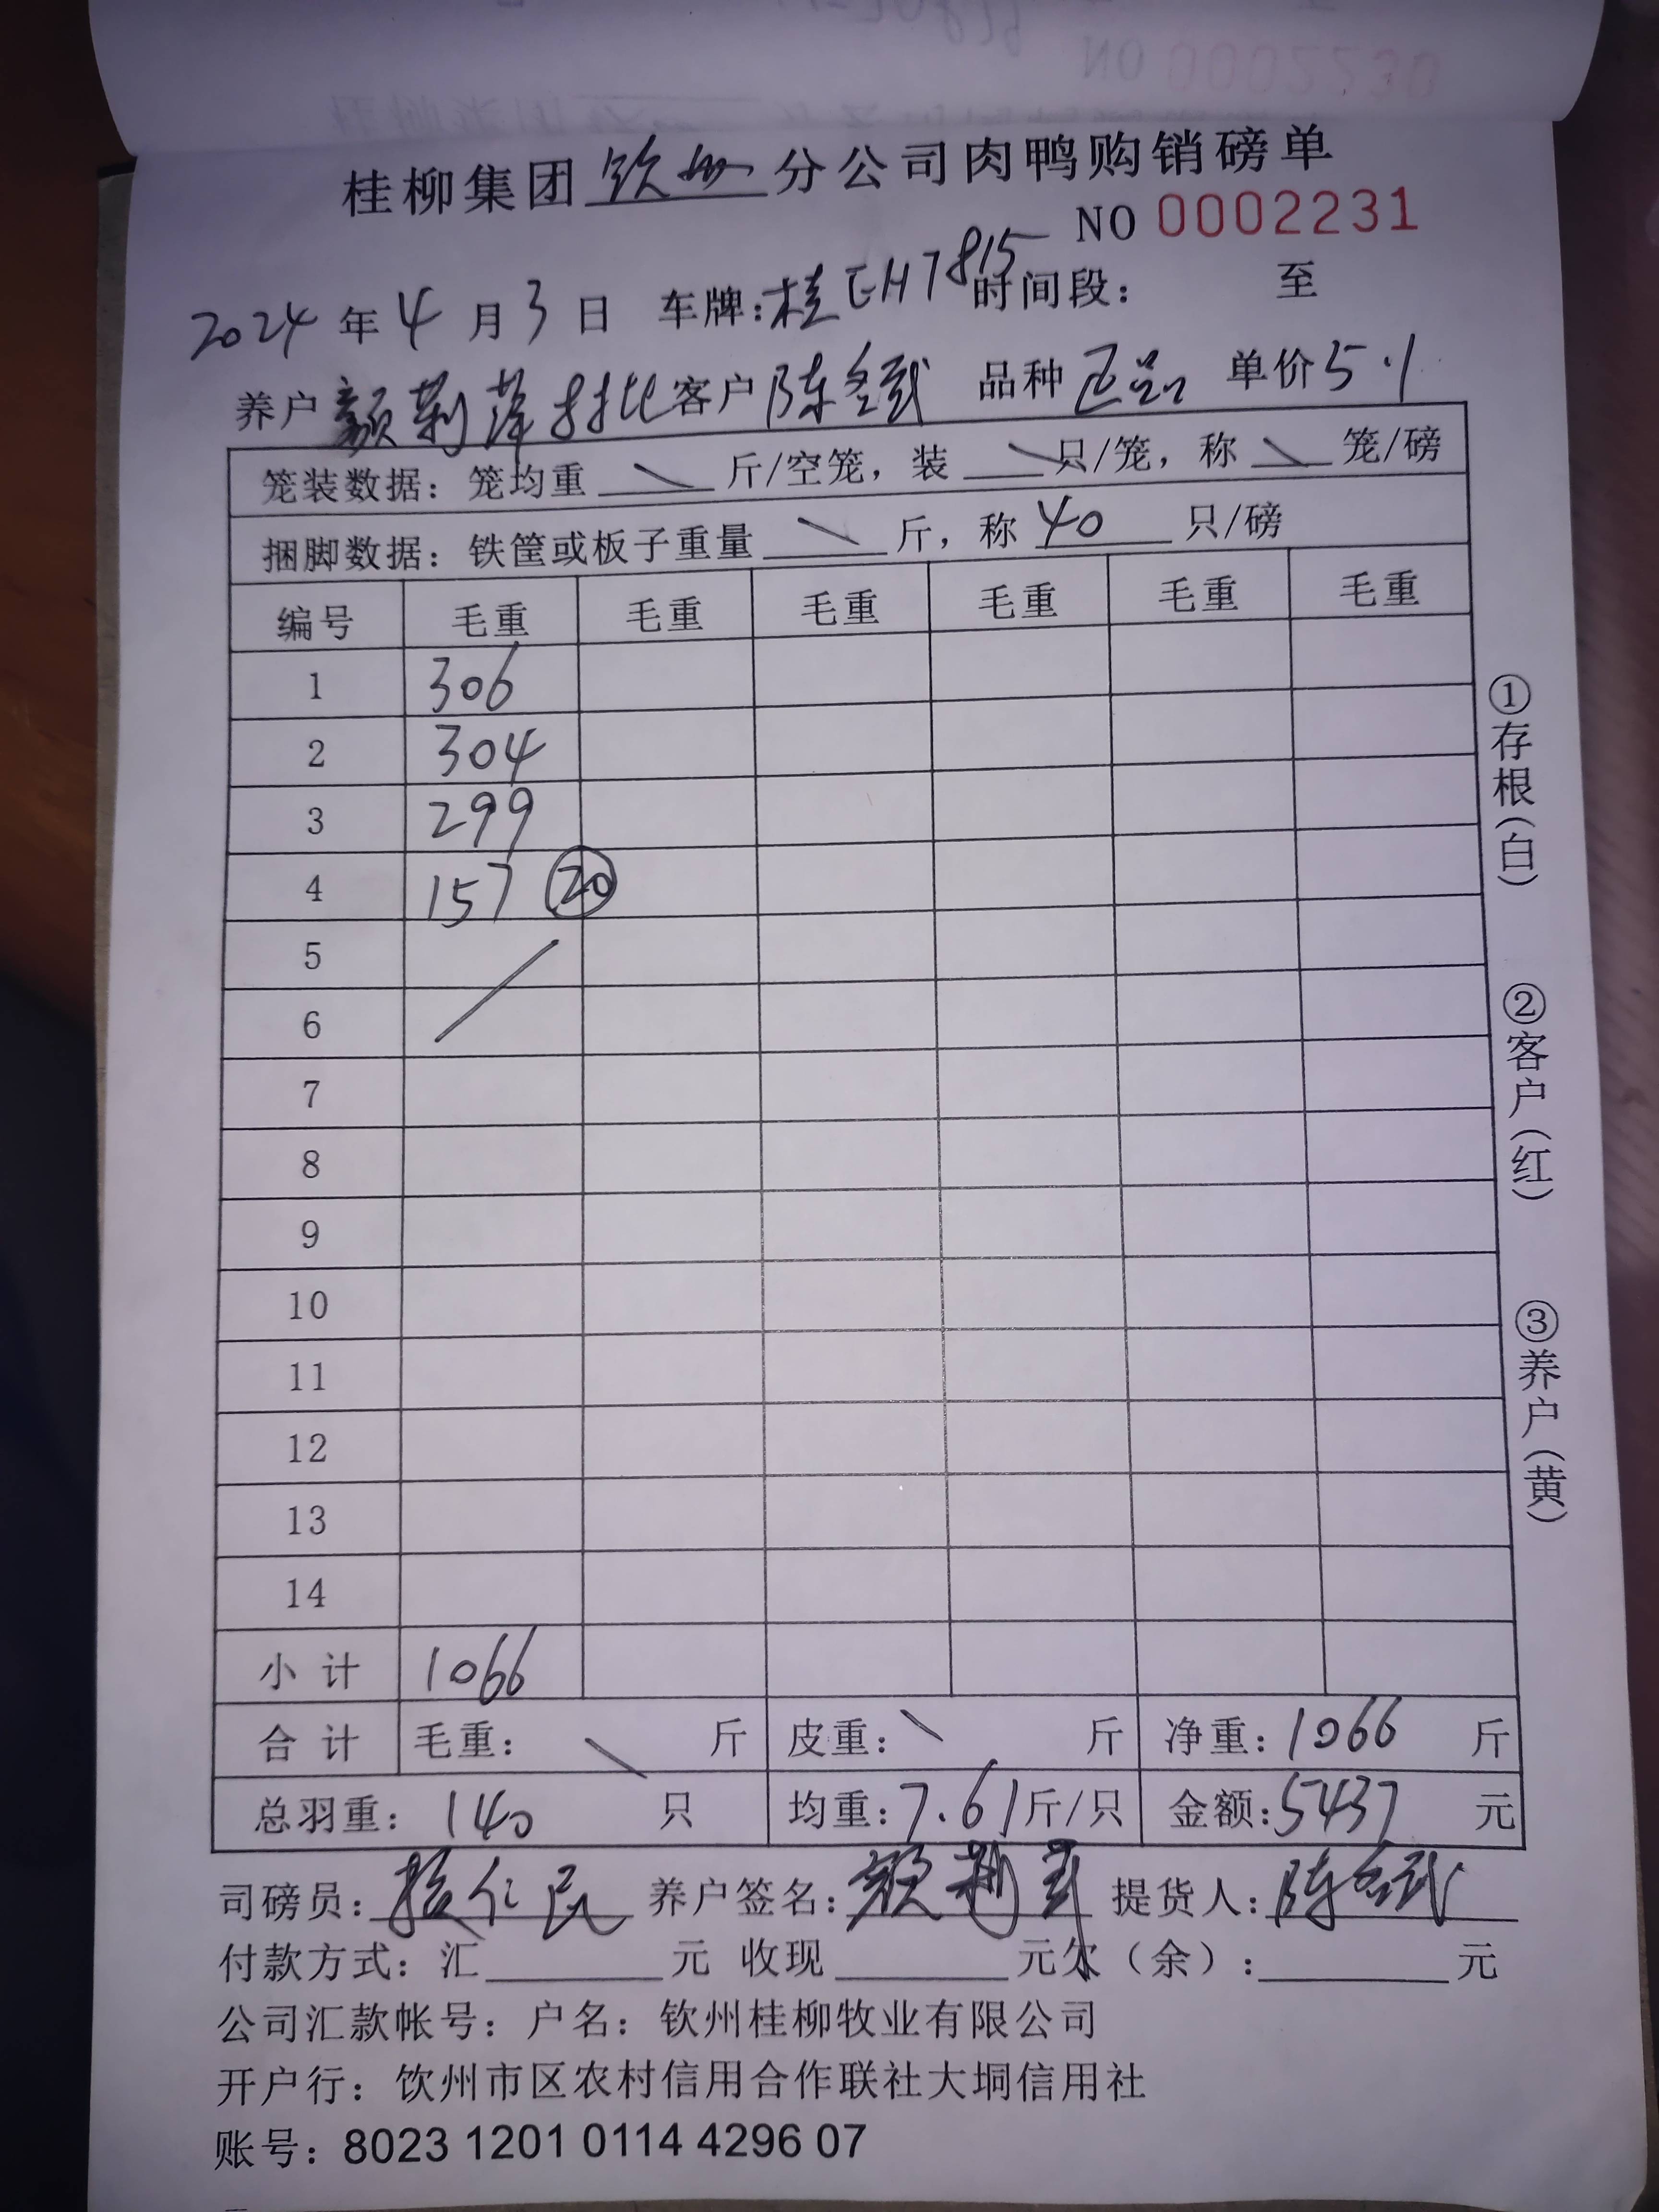 桂柳集团钦州分公司肉鸭购销磅单
NO 0002231
2024年4月3日 车牌:桂EH7815 时间段: 至
养户 颜 批 客户 陈 武 品种 正品 单价5.1
笼装数据: 笼均重 \ 斤/空笼, 装 \ 只/笼, 称 \ 笼/磅
捆脚数据: 铁筐或板子重量 \ 斤, 称 40 只/磅
编号 毛重 毛重 毛重 毛重 毛重 毛重
1 306
2 304
3 299
4 157 ⑳
5
6
7
8
9
10
11
12
13
14
小计 1066
合计 毛重: \ 斤 皮重: \ 斤 净重:1066 斤
总羽重: 140 只 均重:7.61斤/只 金额:5437 元
司磅员: 仁民 养户签名: 颜 提货人: 陈 武
付款方式: 汇 元 收现 元欠(余): 元
公司汇款帐号: 户名: 钦州桂柳牧业有限公司
开户行: 钦州市区农村信用合作联社大垌信用社
账号: 8023 1201 0114 4296 07
①存根(白)
②客户(红)
③养户(黄)
NO 0002230